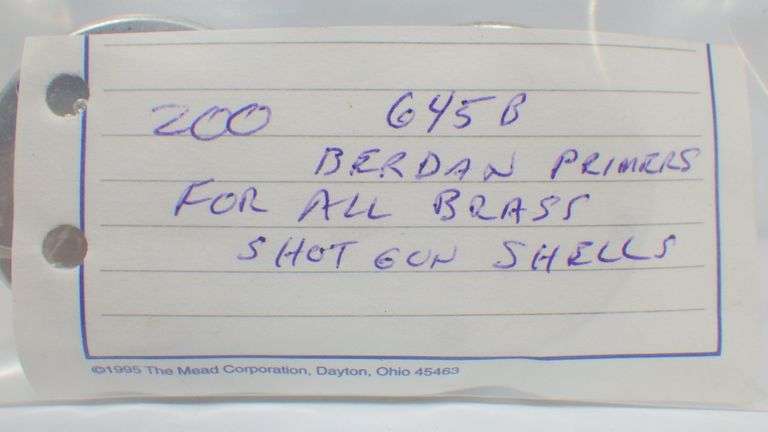 200 645B
BERDAN PRIMERS
FOR ALL BRASS
SHOT GUN SHELLS
©1995 The Mead Corporation, Dayton, Ohio 45463